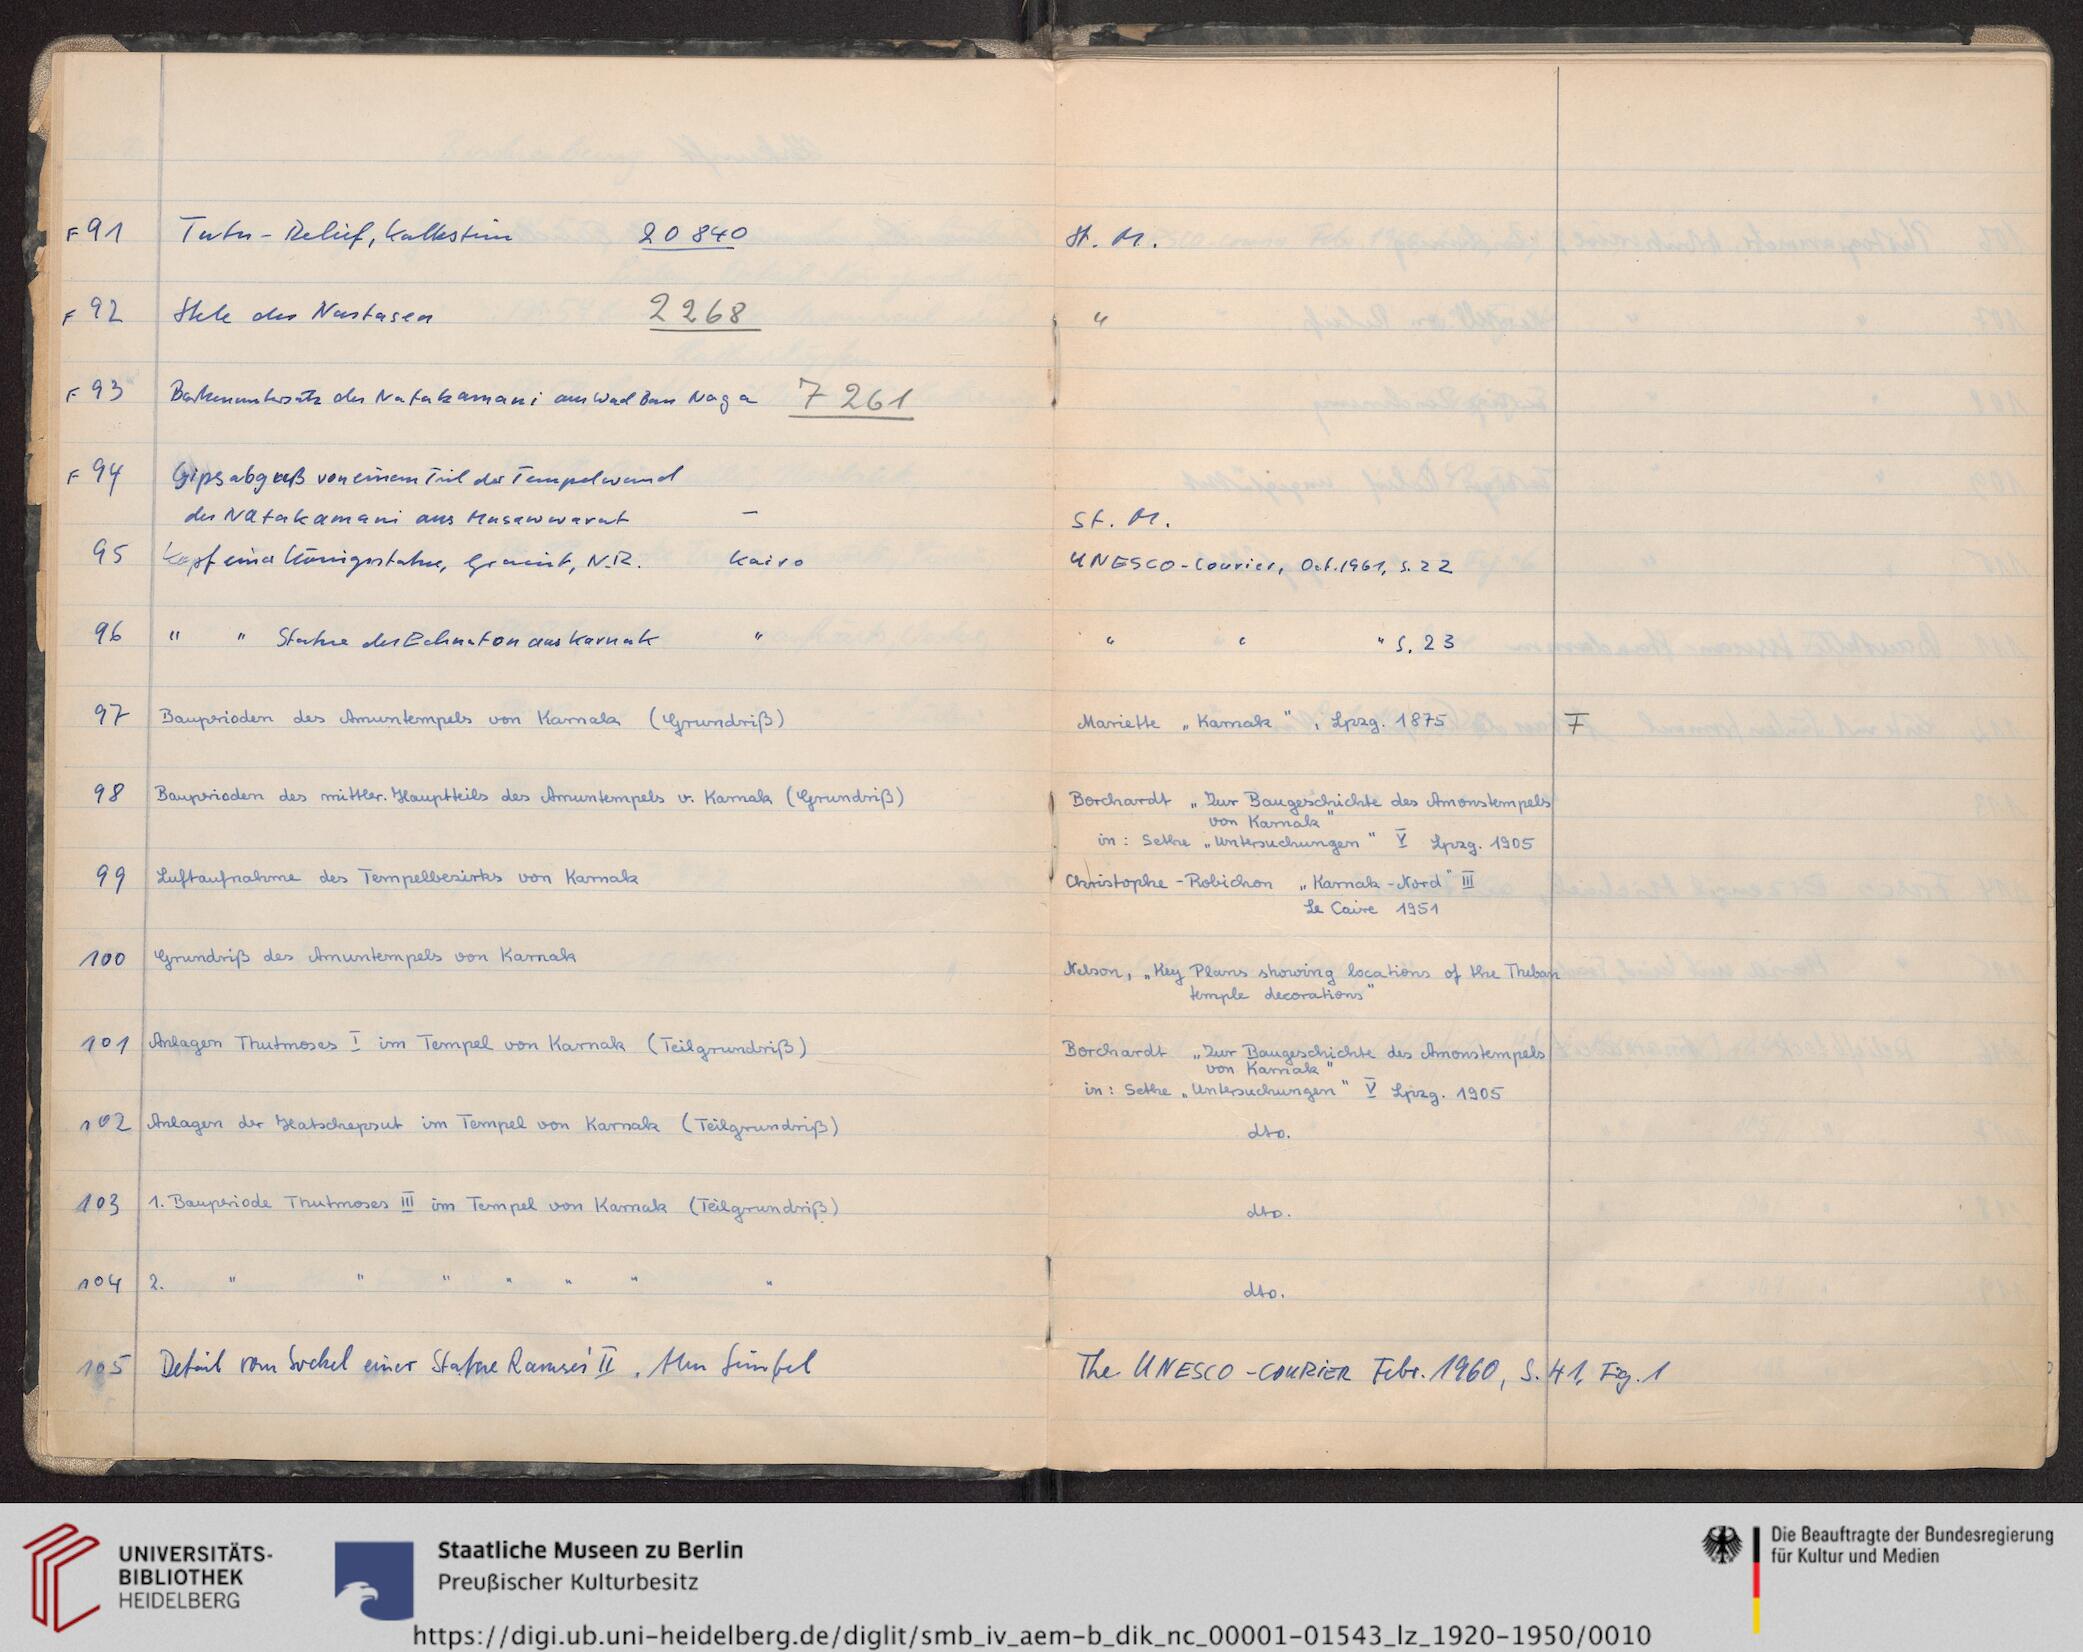 F 91 Tutu-Relief, Kalkstein 20840 St. M.
F 92 Stele des Nastasen 2268 "
F 93 Barkenuntersatz des Natakamani aus Wad Ban Naga 7261
F 94 Gipsabguß von einem Teil der Tempelwand
des Natakamani aus Musawwarat – St. M.
95 Kopf einer Königsstatue, Granit, N.R. Kairo UNESCO-Courier, Oct. 1961, S. 22
96 " " Statue des Echnaton aus Karnak " " " " S. 23
97 Bauperioden des Amuntempels von Karnak (Grundriß) Mariette „Karnak", Lpzg. 1875 F
98 Bauperioden des mittler. Hauptteils des Amuntempels v. Karnak (Grundriß) Borchardt „Zur Baugeschichte des Amonstempels
von Karnak"
in: Sethe „Untersuchungen" V Lpzg. 1905
99 Luftaufnahme des Tempelbezirks von Karnak Christophe-Robichon „Karnak-Nord" III
Le Caire 1951
100 Grundriß des Amuntempels von Karnak
Nelson, „Key Plans showing locations of the Theban
temple decorations"
101 Anlagen Thutmoses I im Tempel von Karnak (Teilgrundriß) Borchardt „Zur Baugeschichte des Amonstempels
von Karnak"
in: Sethe „Untersuchungen" V Lpzg. 1905
102 Anlagen der Hatschepsut im Tempel von Karnak (Teilgrundriß) dto.
103 1. Bauperiode Thutmoses III im Tempel von Karnak (Teilgrundriß) dto.
104 2. " " " " " " " dto.
105 Detail vom Sockel einer Statue Ramses' II, Abu Simbel The UNESCO-COURIER Febr. 1960, S. 41, Fig. 1
UNIVERSITÄTS-
BIBLIOTHEK
HEIDELBERG
Staatliche Museen zu Berlin
Preußischer Kulturbesitz
Die Beauftragte der Bundesregierung
für Kultur und Medien
https://digi.ub.uni-heidelberg.de/diglit/smb_iv_aem-b_dik_nc_00001-01543_lz_1920-1950/0010